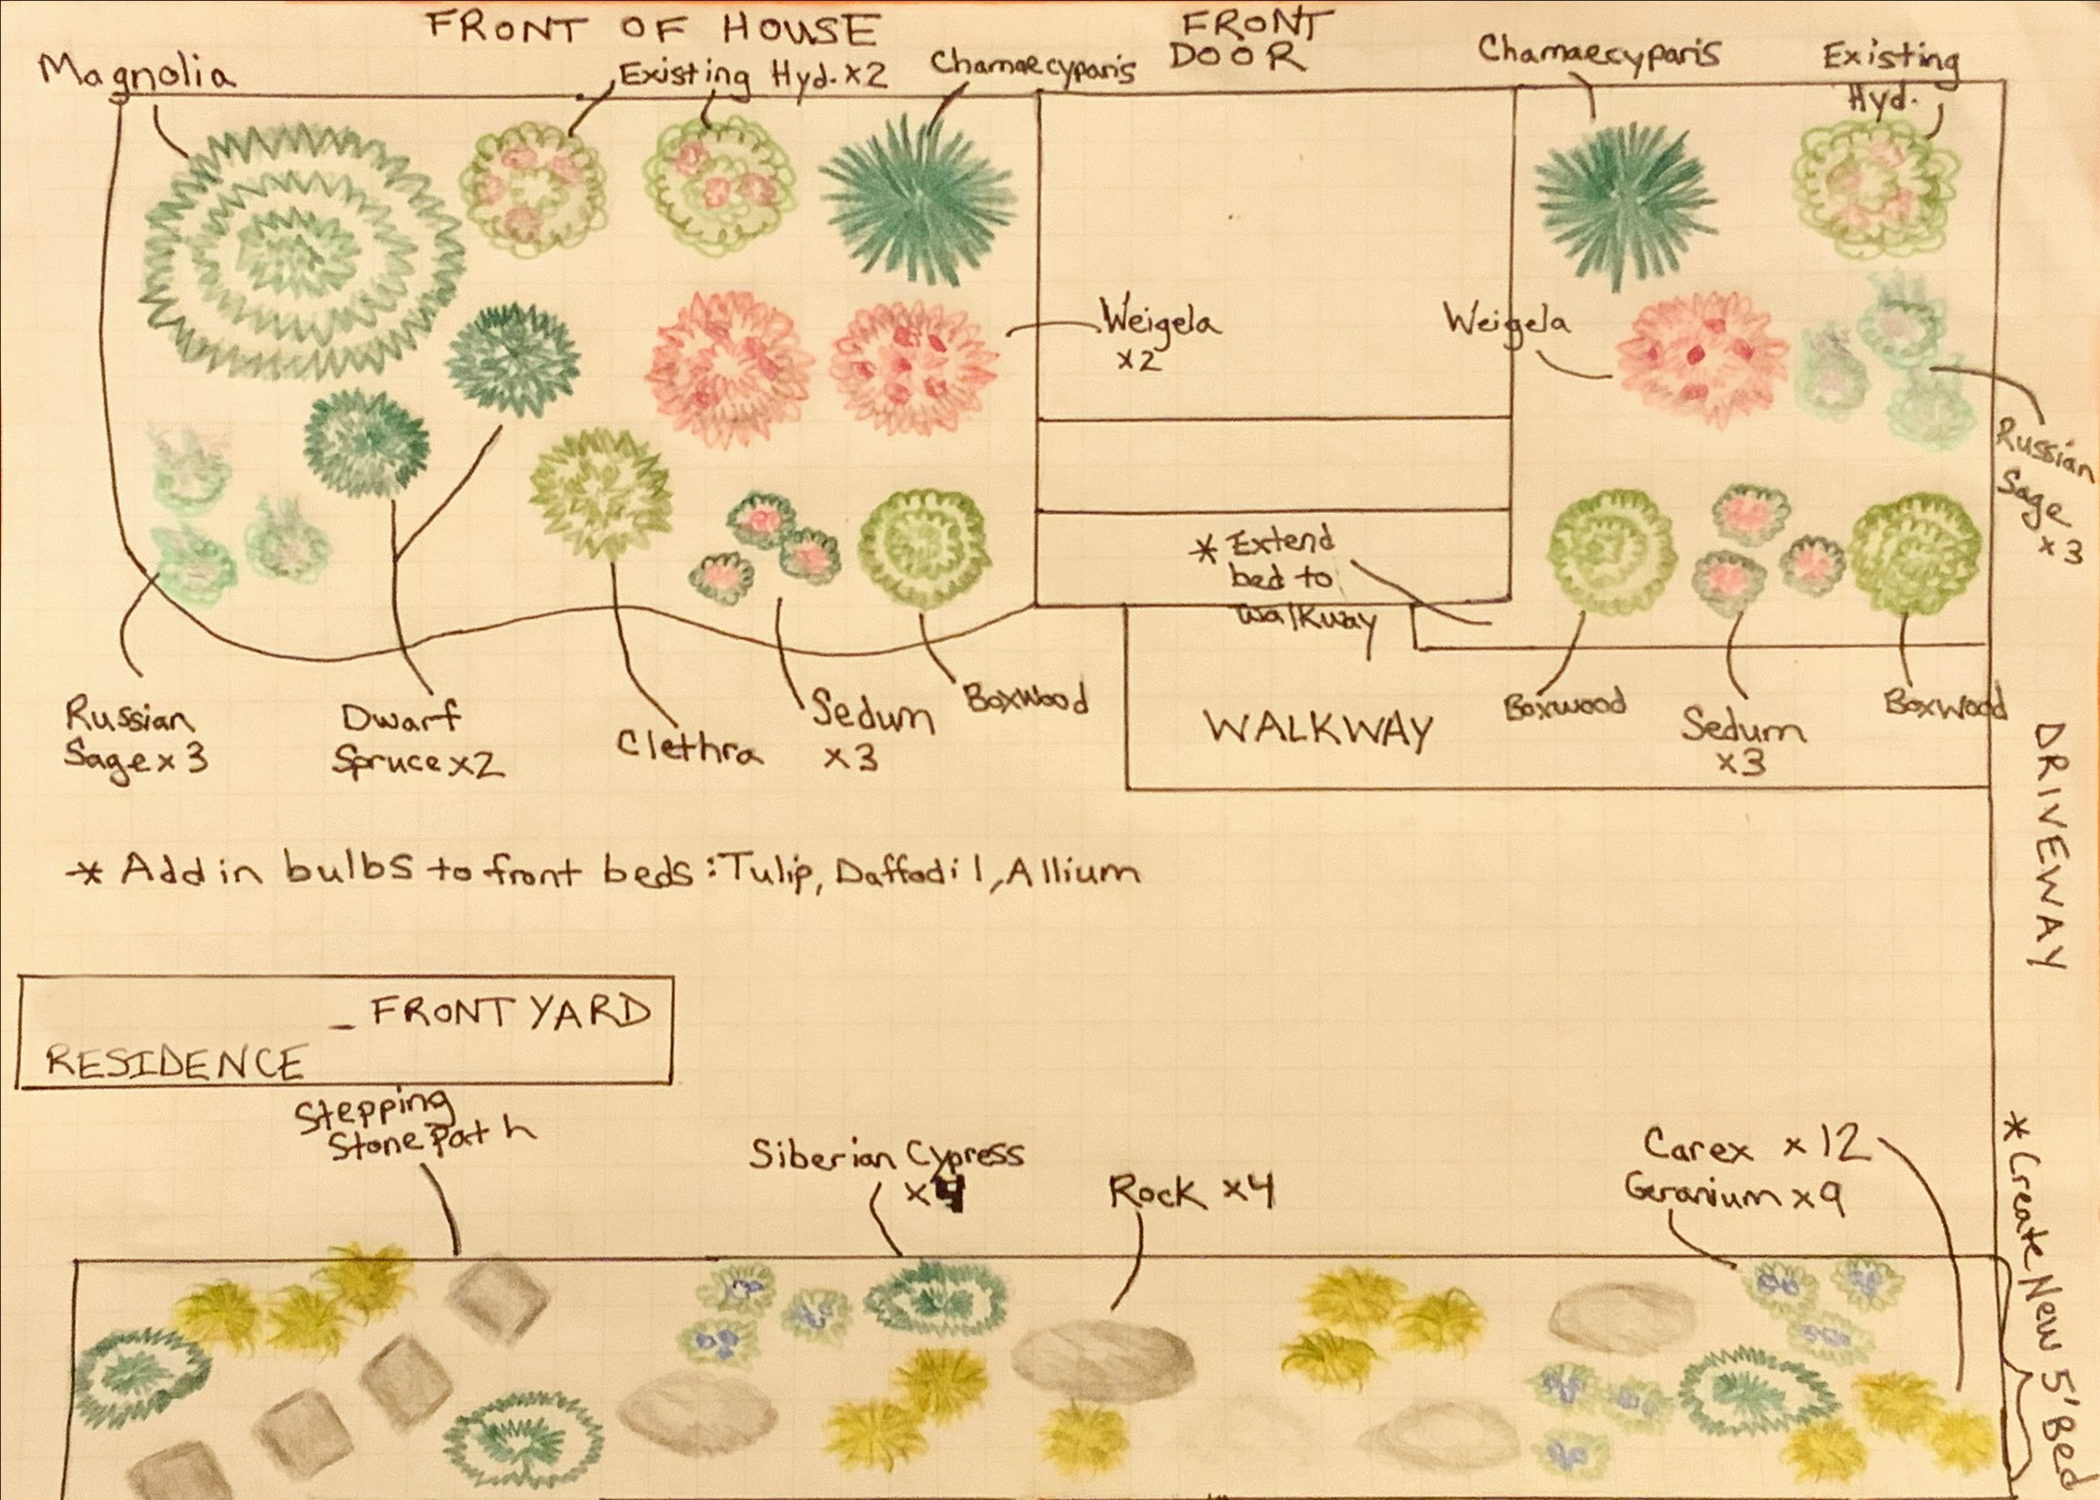 FRONT OF HOUSE
FRONT
DOOR
Magnolia
Existing Hyd. x2
Chamaecyparis
Chamaecyparis
Existing
Hyd.
Weigela
x2
Weigela
Russian
Sage
x3
* Extend
bed to
walkway
Russian
Sage x3
Dwarf
Spruce x2
Clethra
Sedum
x3
Boxwood
WALKWAY
Boxwood
Sedum
x3
Boxwood
DRIVEWAY
* Add in bulbs to front beds: Tulip, Daffodil, Allium
- FRONT YARD
RESIDENCE
Stepping
Stone Path
Siberian Cypress
x4
Rock x4
Carex x12
Geranium x9
* Create New 5' Bed